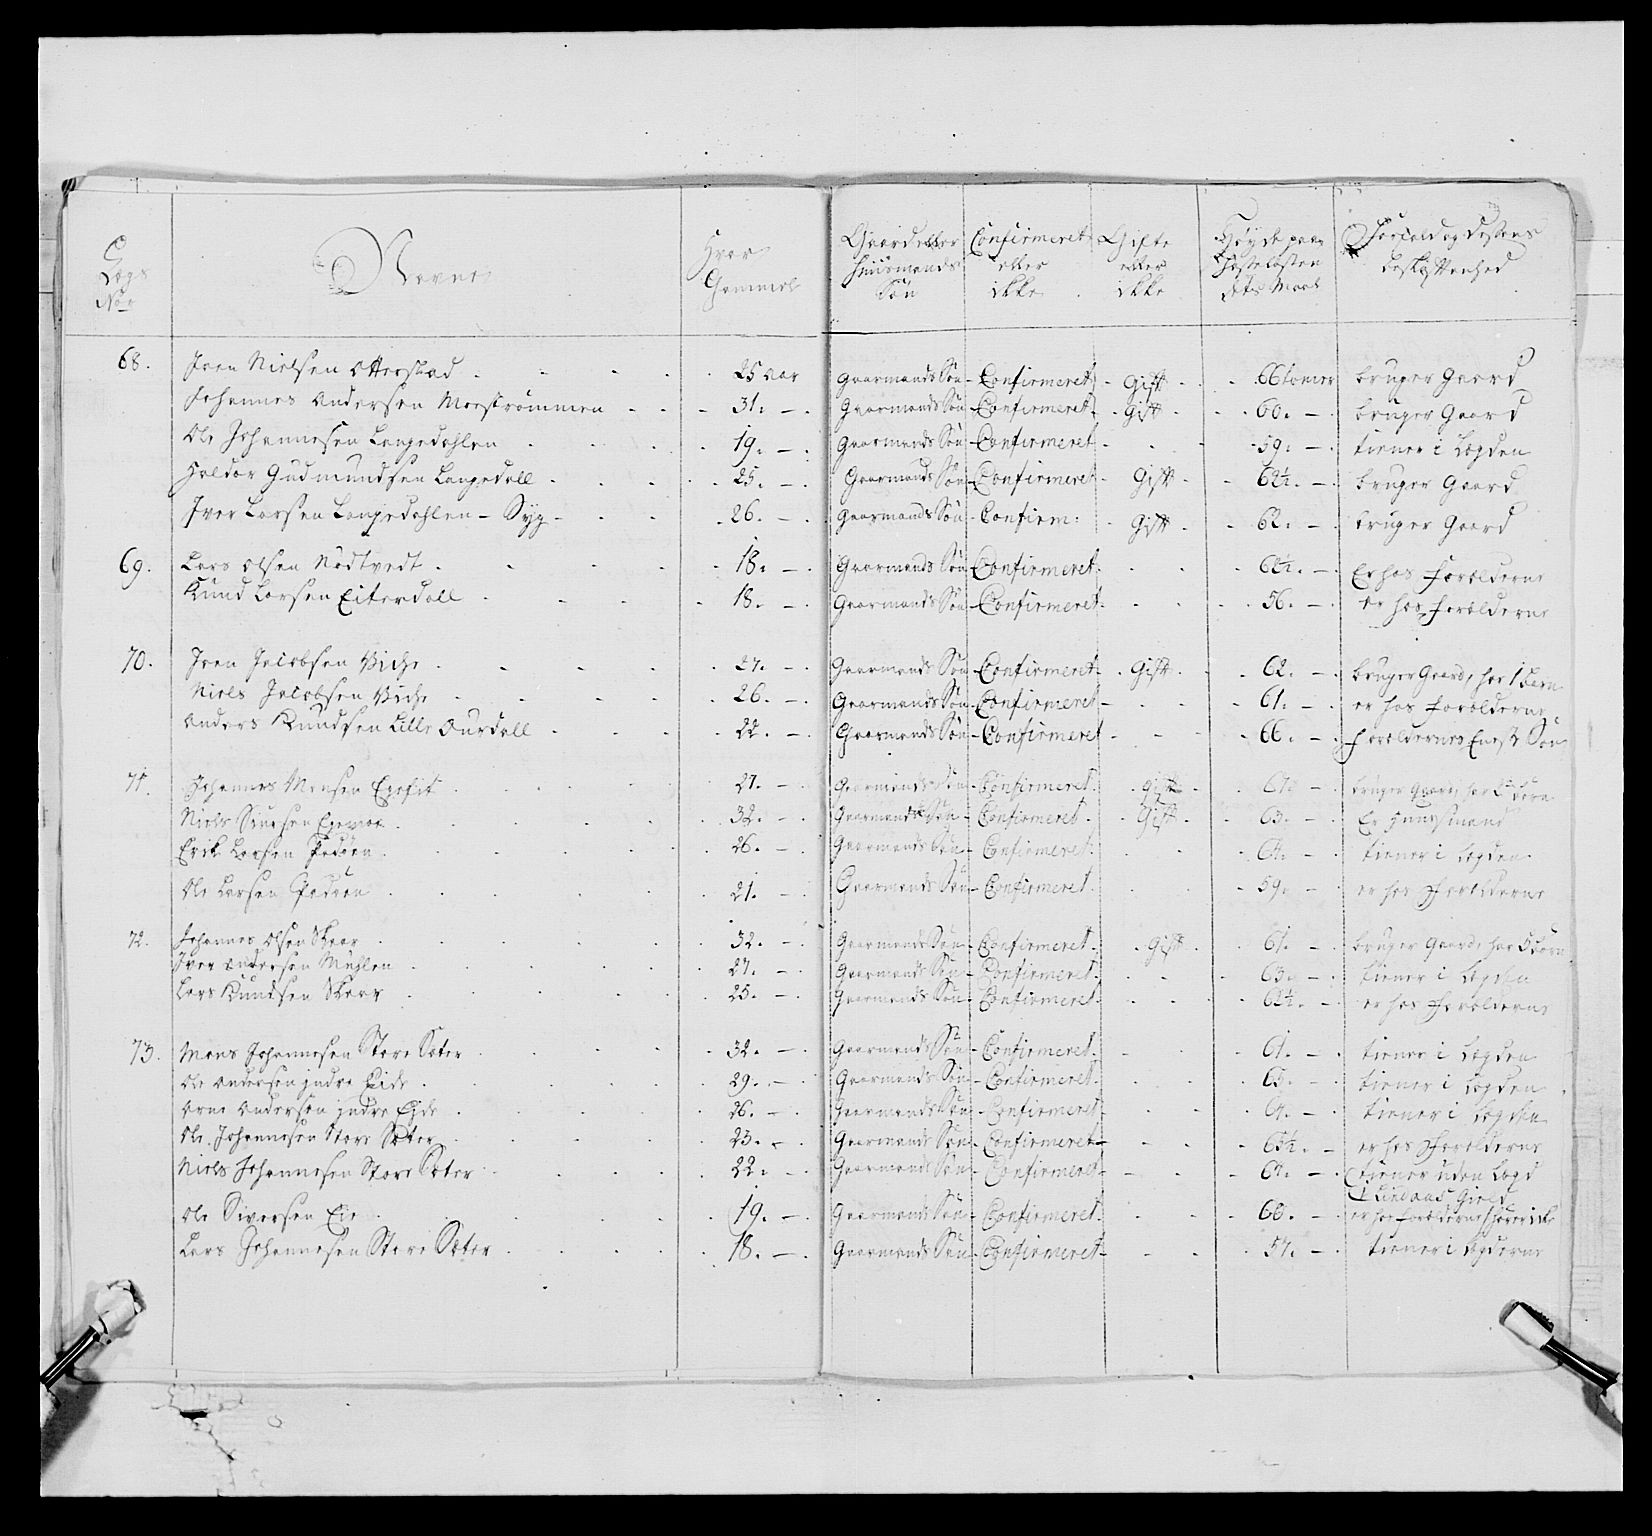 Lægs No Navne Hvor Gammel Gaard eller Huusmands Søn Confirmeret eller ikke Gifte eller ikke Høyde paa Hosteløsten Dets Maal Forholdog Dessens beskaffenhed
68. Iven Nielsen Otterstad 25 aar Gaarmands Søn Confirmeret Gift 66 tomer bruger Gaard
Johannes Andersen Morstrømmen 31. Gaarmands Søn Confirmeret Gift 60. bruger Gaard
Ole Johannesen Langedahlen 19. Gaarmands Søn Confirmeret 59. tiener i Lægden
Haldor Gudmundsen Langedall 25. Gaarmands Søn Confirmeret Gift 62½. bruger Gaard
Iver Larsen Langedahlen - Syg 26. Gaarmands Søn Confirm: Gift 62. bruger Gaard
69. Lars Olsen Nødtvedt 18. Gaarmands Søn Confirmeret 62½. Er hos Forælderne
Knud Larsen Eiterdall 18. Gaarmands Søn Confirmeret 56. er hos Forælderne
70. Iven Jacobsen Viche 27. Gaarmands Søn Confirmeret Gift 62. bruger Gaard, har 1 barn
Niels Jacobsen Viche 26. Gaarmands Søn Confirmeret 61. er hos Forælderne
Anders Knudsen Lille Ourdall 22. Gaarmands Søn Confirmeret 66. Forældernes Eneste Søn
71. Johannes Monsen 27. Gaarmands Søn Confirmeret Gift bruger Gaard, har børn
Niels Siursen 32. Gaarmands Søn Confirmeret Gift 63. Er Huusmand
Erik Larsen 26. Gaarmands Søn Confirmeret tiener i Lægden
Ole Larsen 21. Gaarmands Søn Confirmeret 59. er hos Forælderne
72. Johannes Olsen Skaar 32. Gaarmands Søn Confirmeret Gift 61. bruger Gaard, har 5 børn
Iver Andersen Mühlen 27. Gaarmands Søn Confirmeret 63. tiener i Lægden
Lars Knudsen Skaar 25. Gaarmands Søn Confirmeret 62½. er hos Forælderne
73. Mons Johannesen Store Sæter 32. Gaarmands Søn Confirmeret 61. tiener i Lægden
Ole Andersen indre Eide 29. Gaarmands Søn Confirmeret 65. tiener i Lægden
Arne Andersen indre Eide 26. Gaarmands Søn Confirmeret tiener i Lægden
Ole Johannesen Store Sæter 23. Gaarmands Søn Confirmeret er hos Forælderne
Niels Johannesen Store Sæter 22. Gaarmands Søn Confirmeret tiener uden Lægd
i Lindaas Gield
Ole Siversen Eie 19. Gaarmands Søn Confirmeret 60. er hos Forælderne hører icke
Lars Johannesen Store Sæter 18. Gaarmands Søn Confirmeret 57. tiener i Lægderne